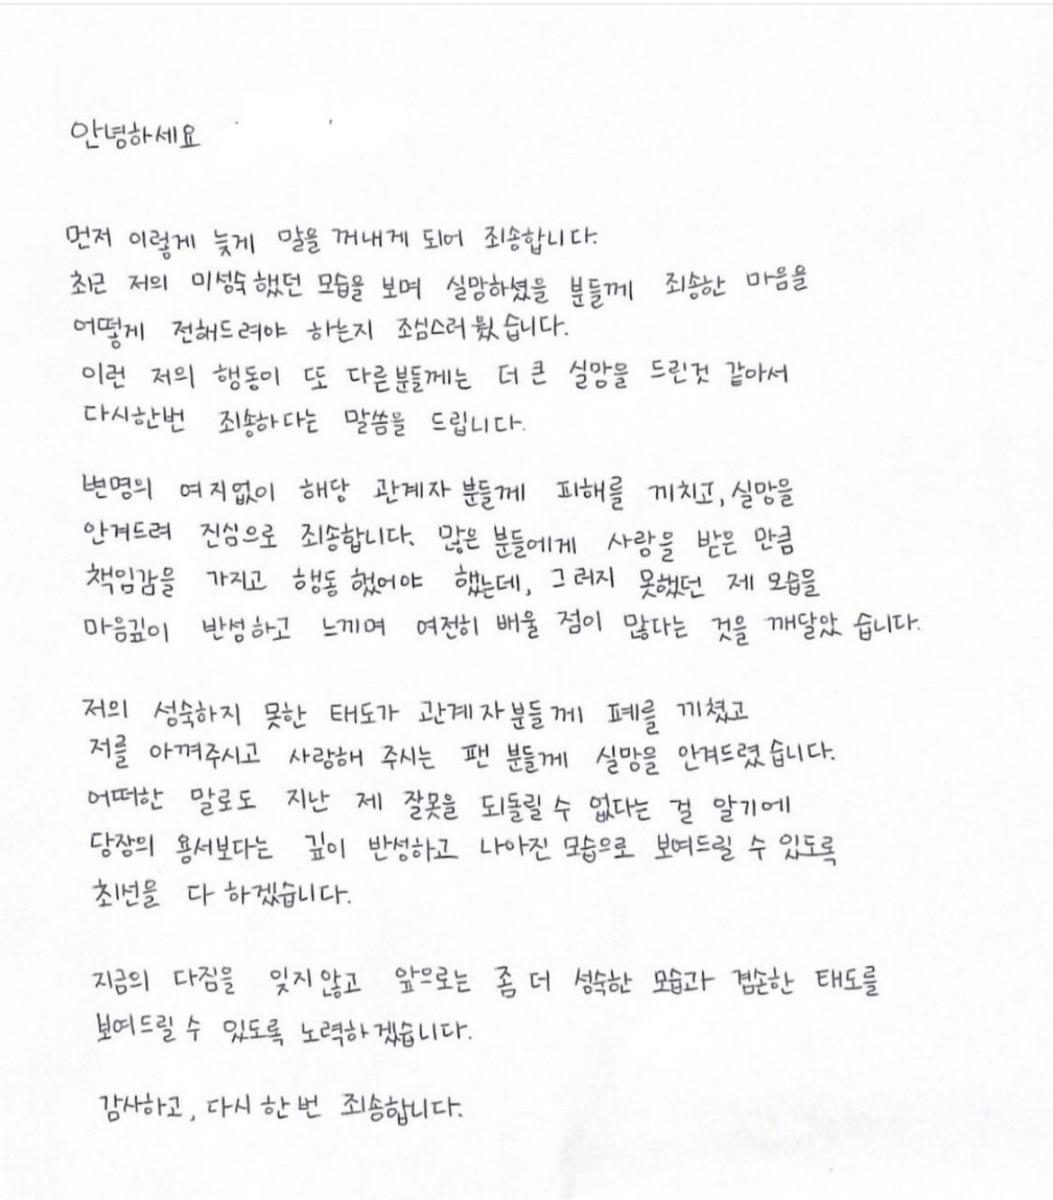 안녕하세요
먼저 이렇게 늦게 말을 꺼내게 되어 죄송합니다.
최근 저의 미성숙했던 모습을 보며 실망하셨을 분들께 죄송한 마음을
어떻게 전해드려야 하는지 조심스러웠습니다.
이런 저의 행동이 또 다른분들께는 더 큰 실망을 드린것 같아서
다시한번 죄송하다는 말씀을 드립니다.
변명의 여지없이 해당 관계자 분들께 피해를 끼치고, 실망을
안겨드려 진심으로 죄송합니다. 많은 분들에게 사랑을 받은 만큼
책임감을 가지고 행동했어야 했는데, 그러지 못했던 제 모습을
마음깊이 반성하고 느끼며 여전히 배울 점이 많다는 것을 깨달았습니다.
저의 성숙하지 못한 태도가 관계자분들께 폐를 끼쳤고
저를 아껴주시고 사랑해 주시는 팬 분들께 실망을 안겨드렸습니다.
어떠한 말로도 지난 제 잘못을 되돌릴 수 없다는 걸 알기에
당장의 용서보다는 깊이 반성하고 나아진 모습으로 보여드릴 수 있도록
최선을 다 하겠습니다.
지금의 다짐을 잊지않고 앞으로는 좀 더 성숙한 모습과 겸손한 태도를
보여드릴 수 있도록 노력하겠습니다.
감사하고, 다시 한번 죄송합니다.